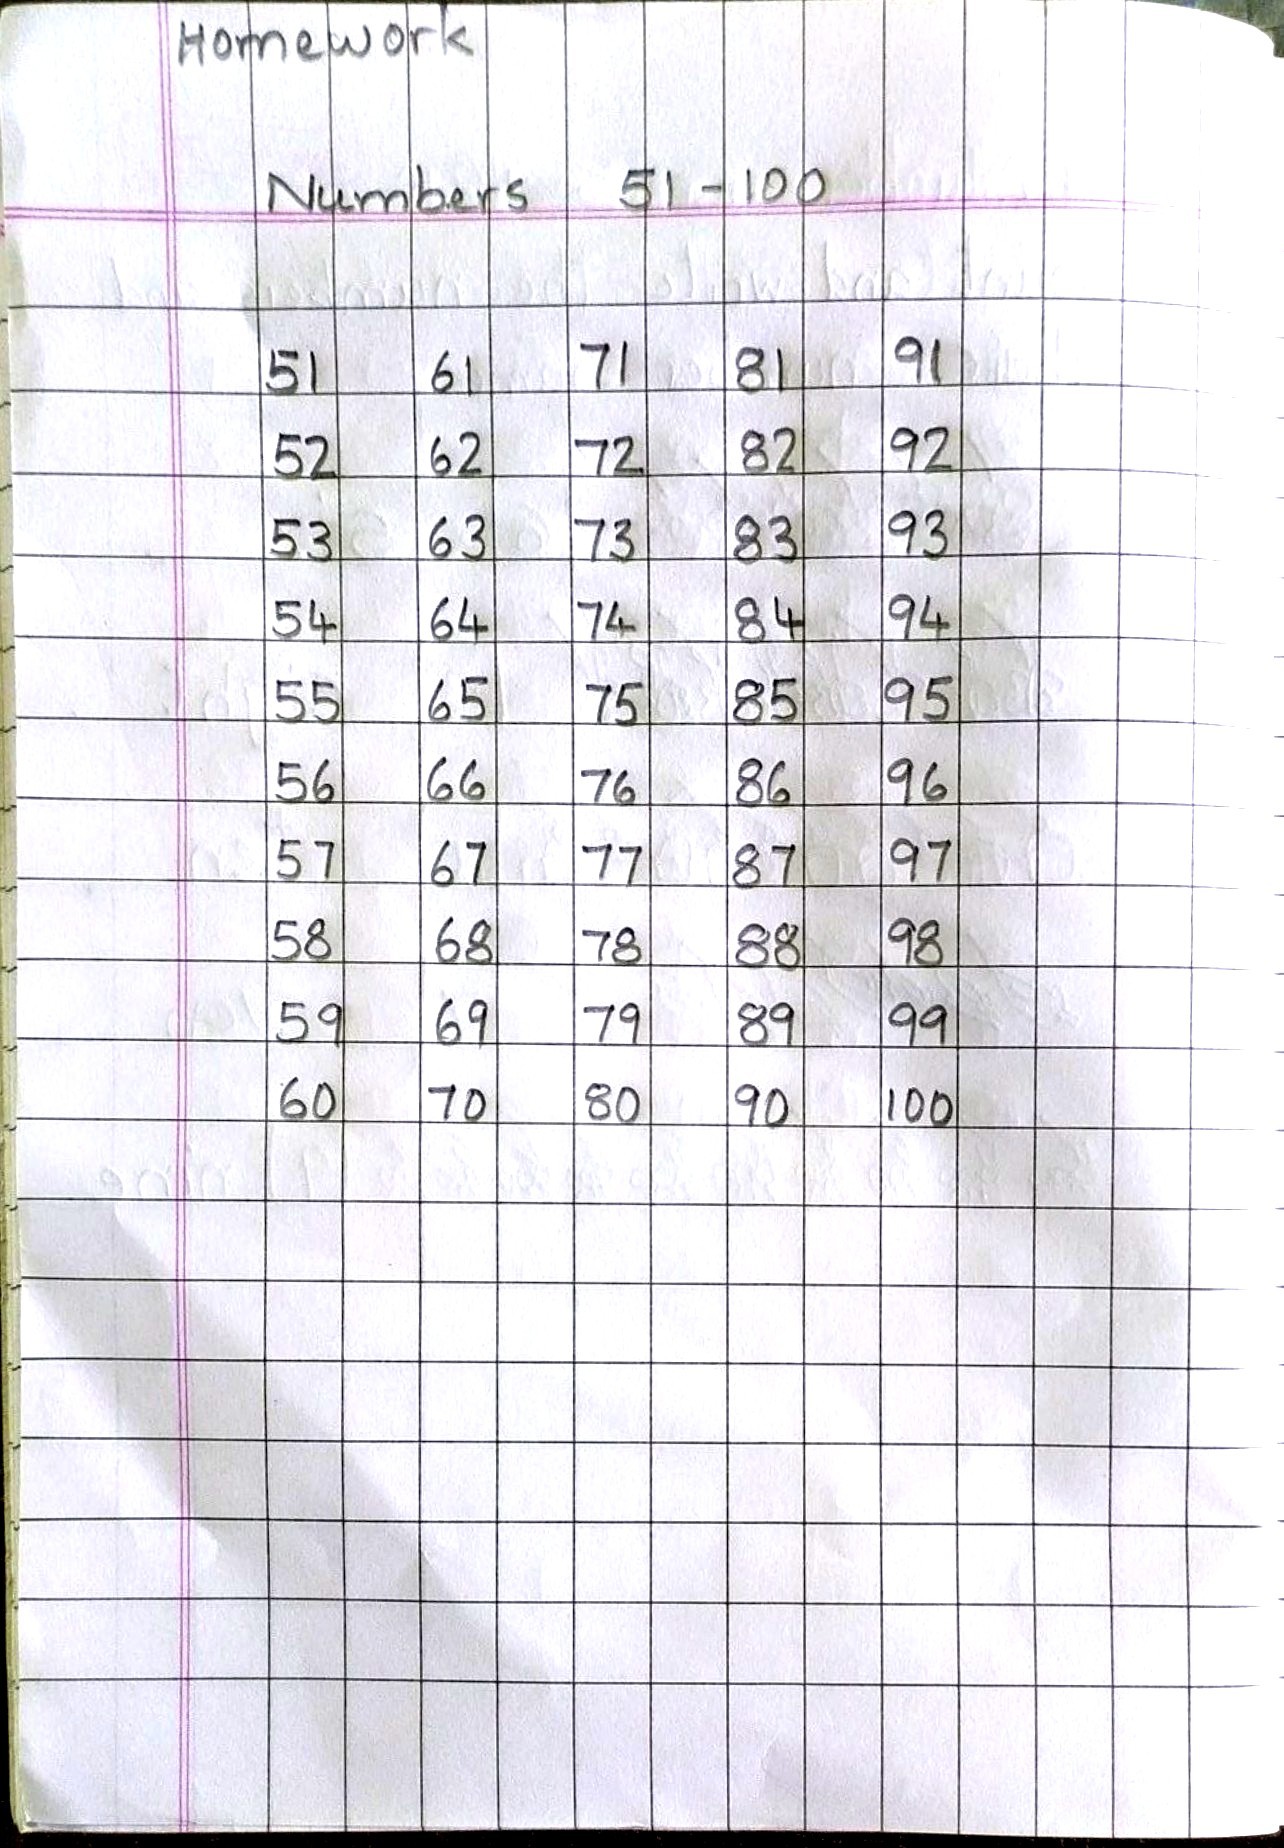 Homework
Numbers 51-100
51 61 71 81 91
52 62 72 82 92
53 63 73 83 93
54 64 74 84 94
55 65 75 85 95
56 66 76 86 96
57 67 77 87 97
58 68 78 88 98
59 69 79 89 99
60 70 80 90 100